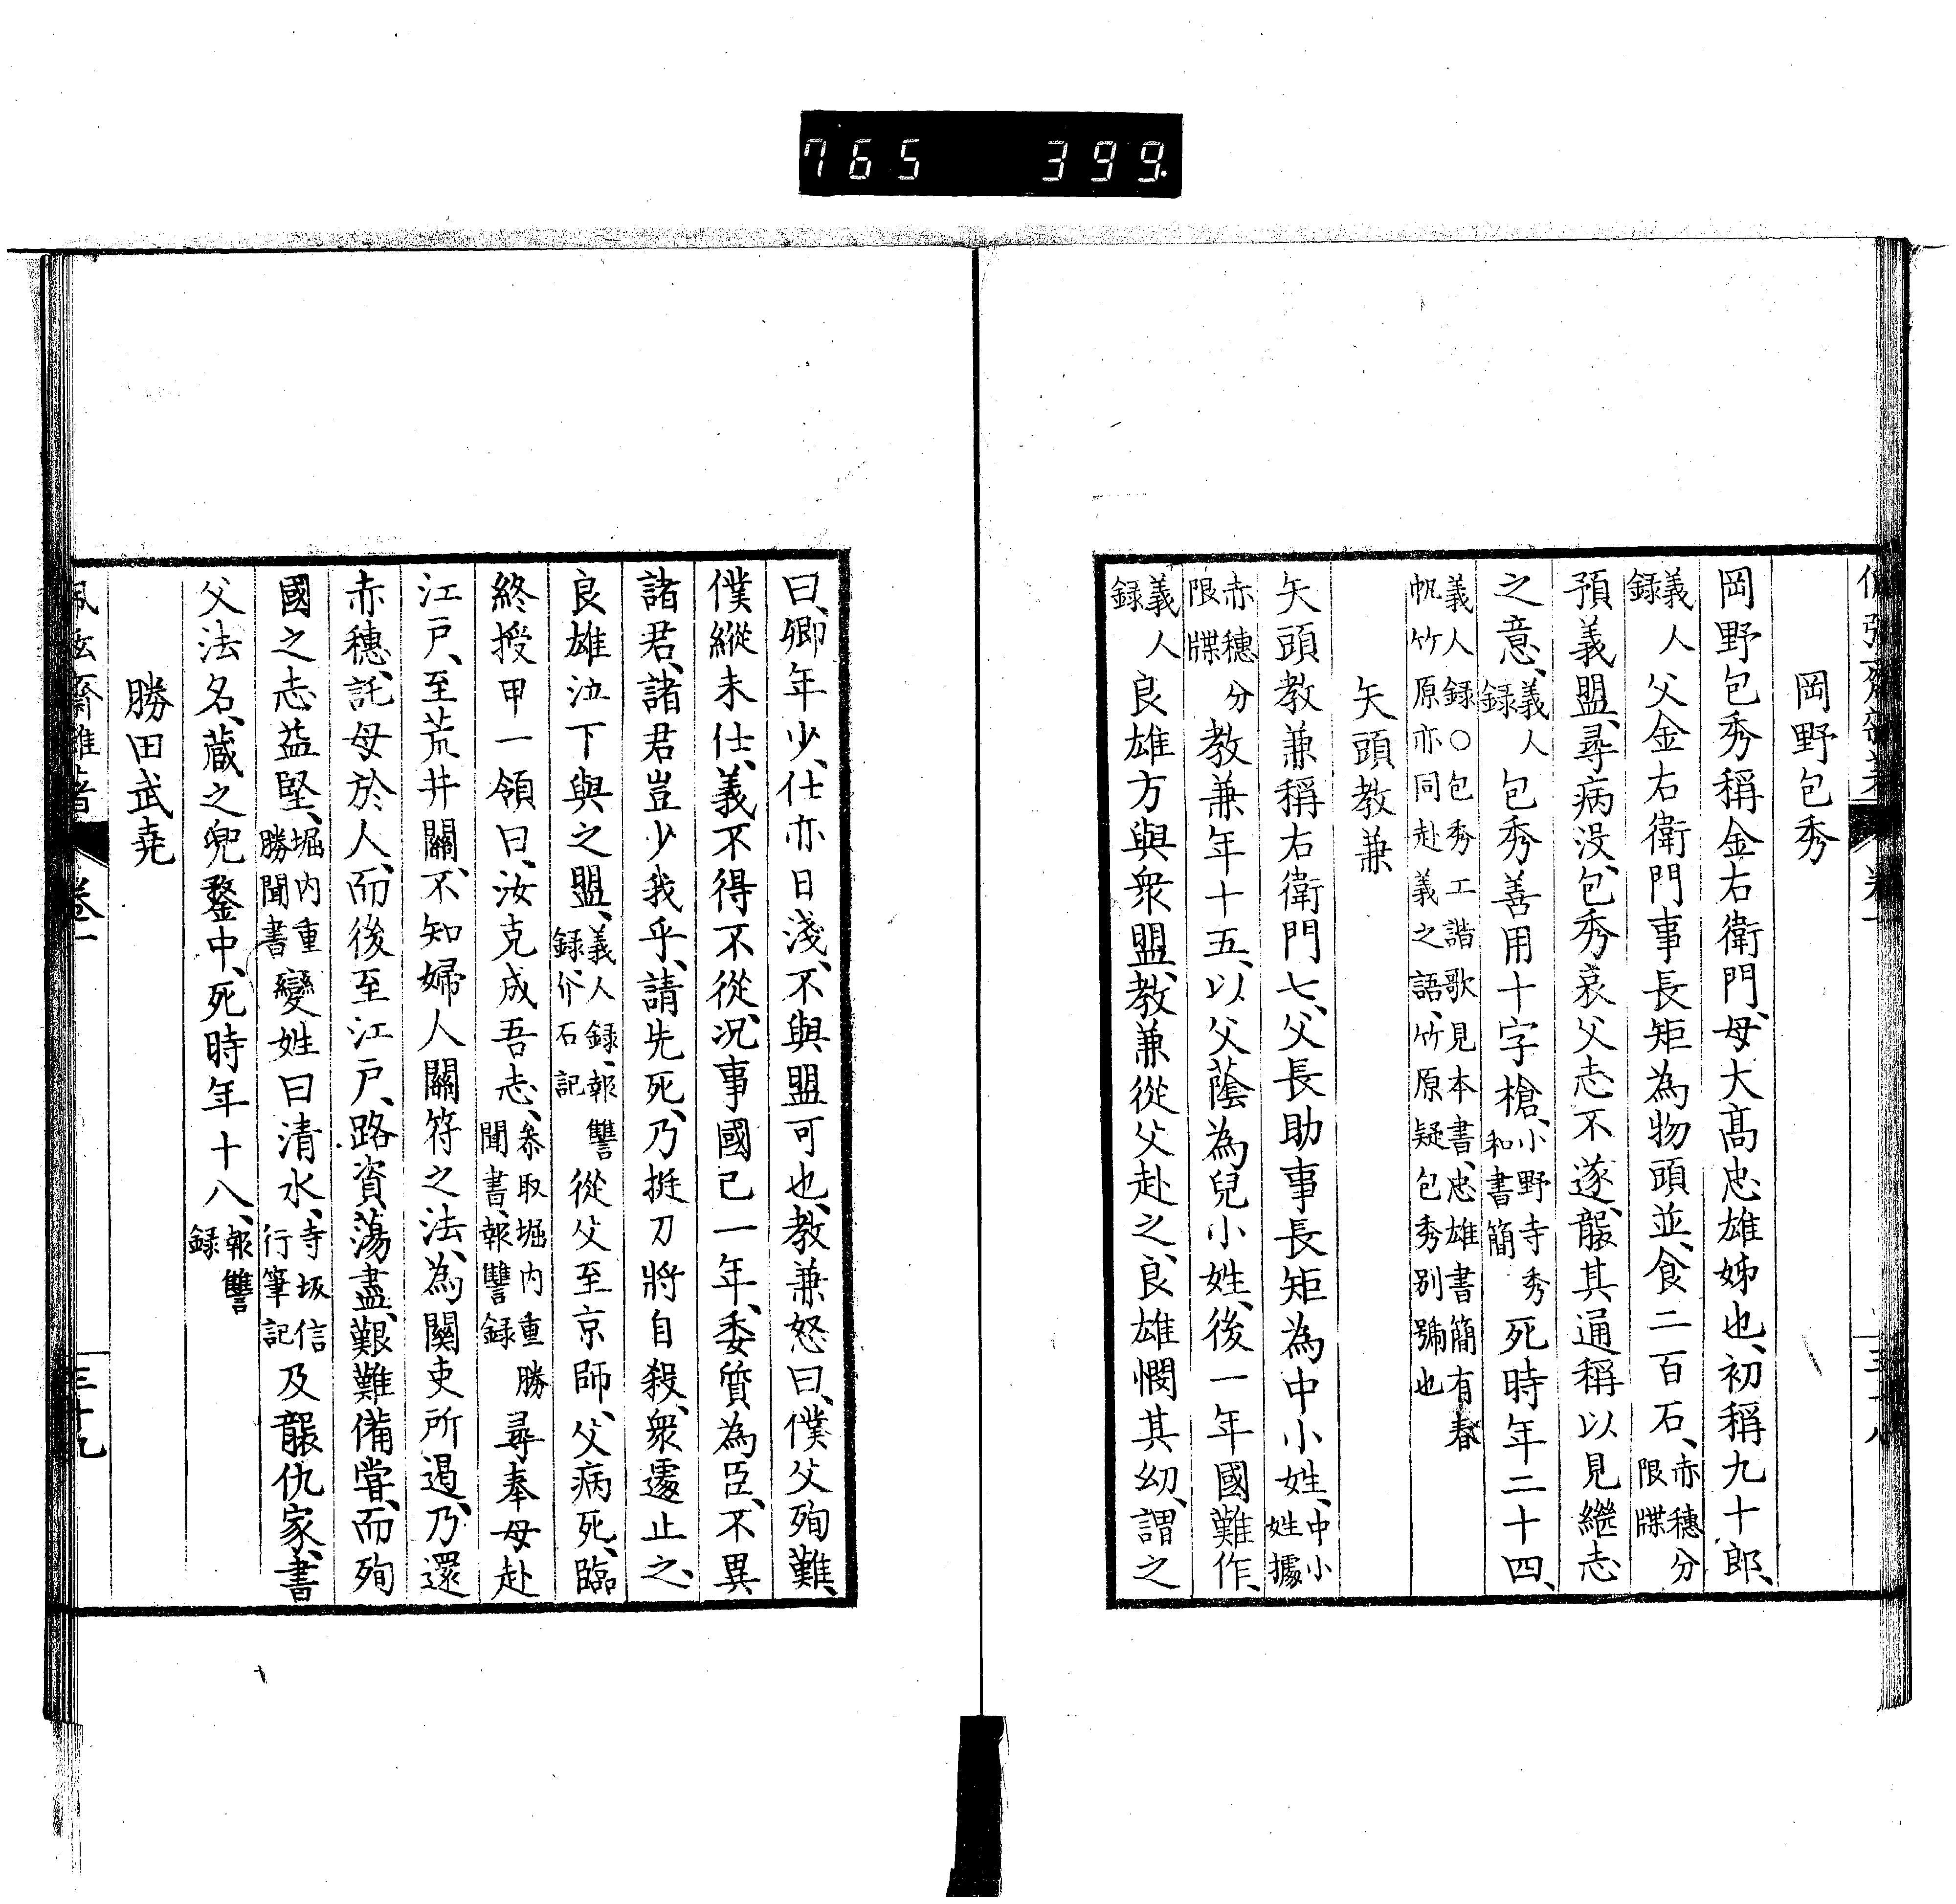 765 399.
岡野包秀
岡野包秀稱金右衛門、母大高忠雄姊也、初稱九十郎、
義人録父金右衛門事長矩為物頭並、食二百石、赤穗分限牒
預義盟、尋病没、包秀哀父志不遂、襲其通稱以見繼志
之意、義人録包秀善用十字槍、小野寺秀和書簡死時年二十四、
義人録○包秀工諧歌見本書、忠雄書簡有春
帆竹原亦同赴義之語、竹原疑包秀別號也
矢頭教兼
矢頭教兼稱右衛門七、父長助事長矩為中小姓、中小姓據
赤穗分限牒教兼年十五、以父蔭為兒小姓、後一年國難作、
義人録良雄方與衆盟、教兼從父赴之、良雄憫其幼、謂之
曰、卿年少、仕亦日淺、不與盟可也、教兼怒曰、僕父殉難、
僕縱未仕、義不得不從、况事國已一年、委質為臣、不異
諸君、諸君豈少我乎、請先死、乃挺刀將自殺、衆遽止之、
良雄泣下與之盟、義人録、報讐録、介石記從父至京師、父病死、臨
終授甲一領曰、汝克成吾志、叅取堀内重勝聞書、報讐録尋奉母赴
江戸、至荒井關、不知婦人關符之法、為關吏所遏、乃還
赤穗、託母於人、而後至江戸、路資蕩盡、艱難備嘗、而殉
國之志益堅、堀内重勝聞書變姓曰清水、寺坂信行筆記及襲仇家、書
父法名、藏之兜鍪中、死時年十八、報讐録
勝田武尭
卷一
三十九